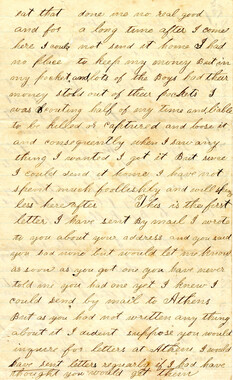 eat that done me no real good
and for a long time after I come
here I could not send it home I had
no place to keep my money but in
my pocket, and lots of the Boys had their
money stold out of their pockets I
was Scouting half of my time and liable
to be killed or captured and loose it
and consequently when I saw any
thing I wanted I got it But since
I could send it home I have not
spent much foolleshly and will spend
less here after This is the first
letter I have sent By mail I wrote
to you about your address and you said
you had none but would let me know
as soon as you got one you have never
told me you had one yet I knew I
could send by mail to Athens
But as you had not written any thing
about it I dident suppose you would
inquire for letters at Athens I would
have sent letters regularly if I had have
thought you would get them